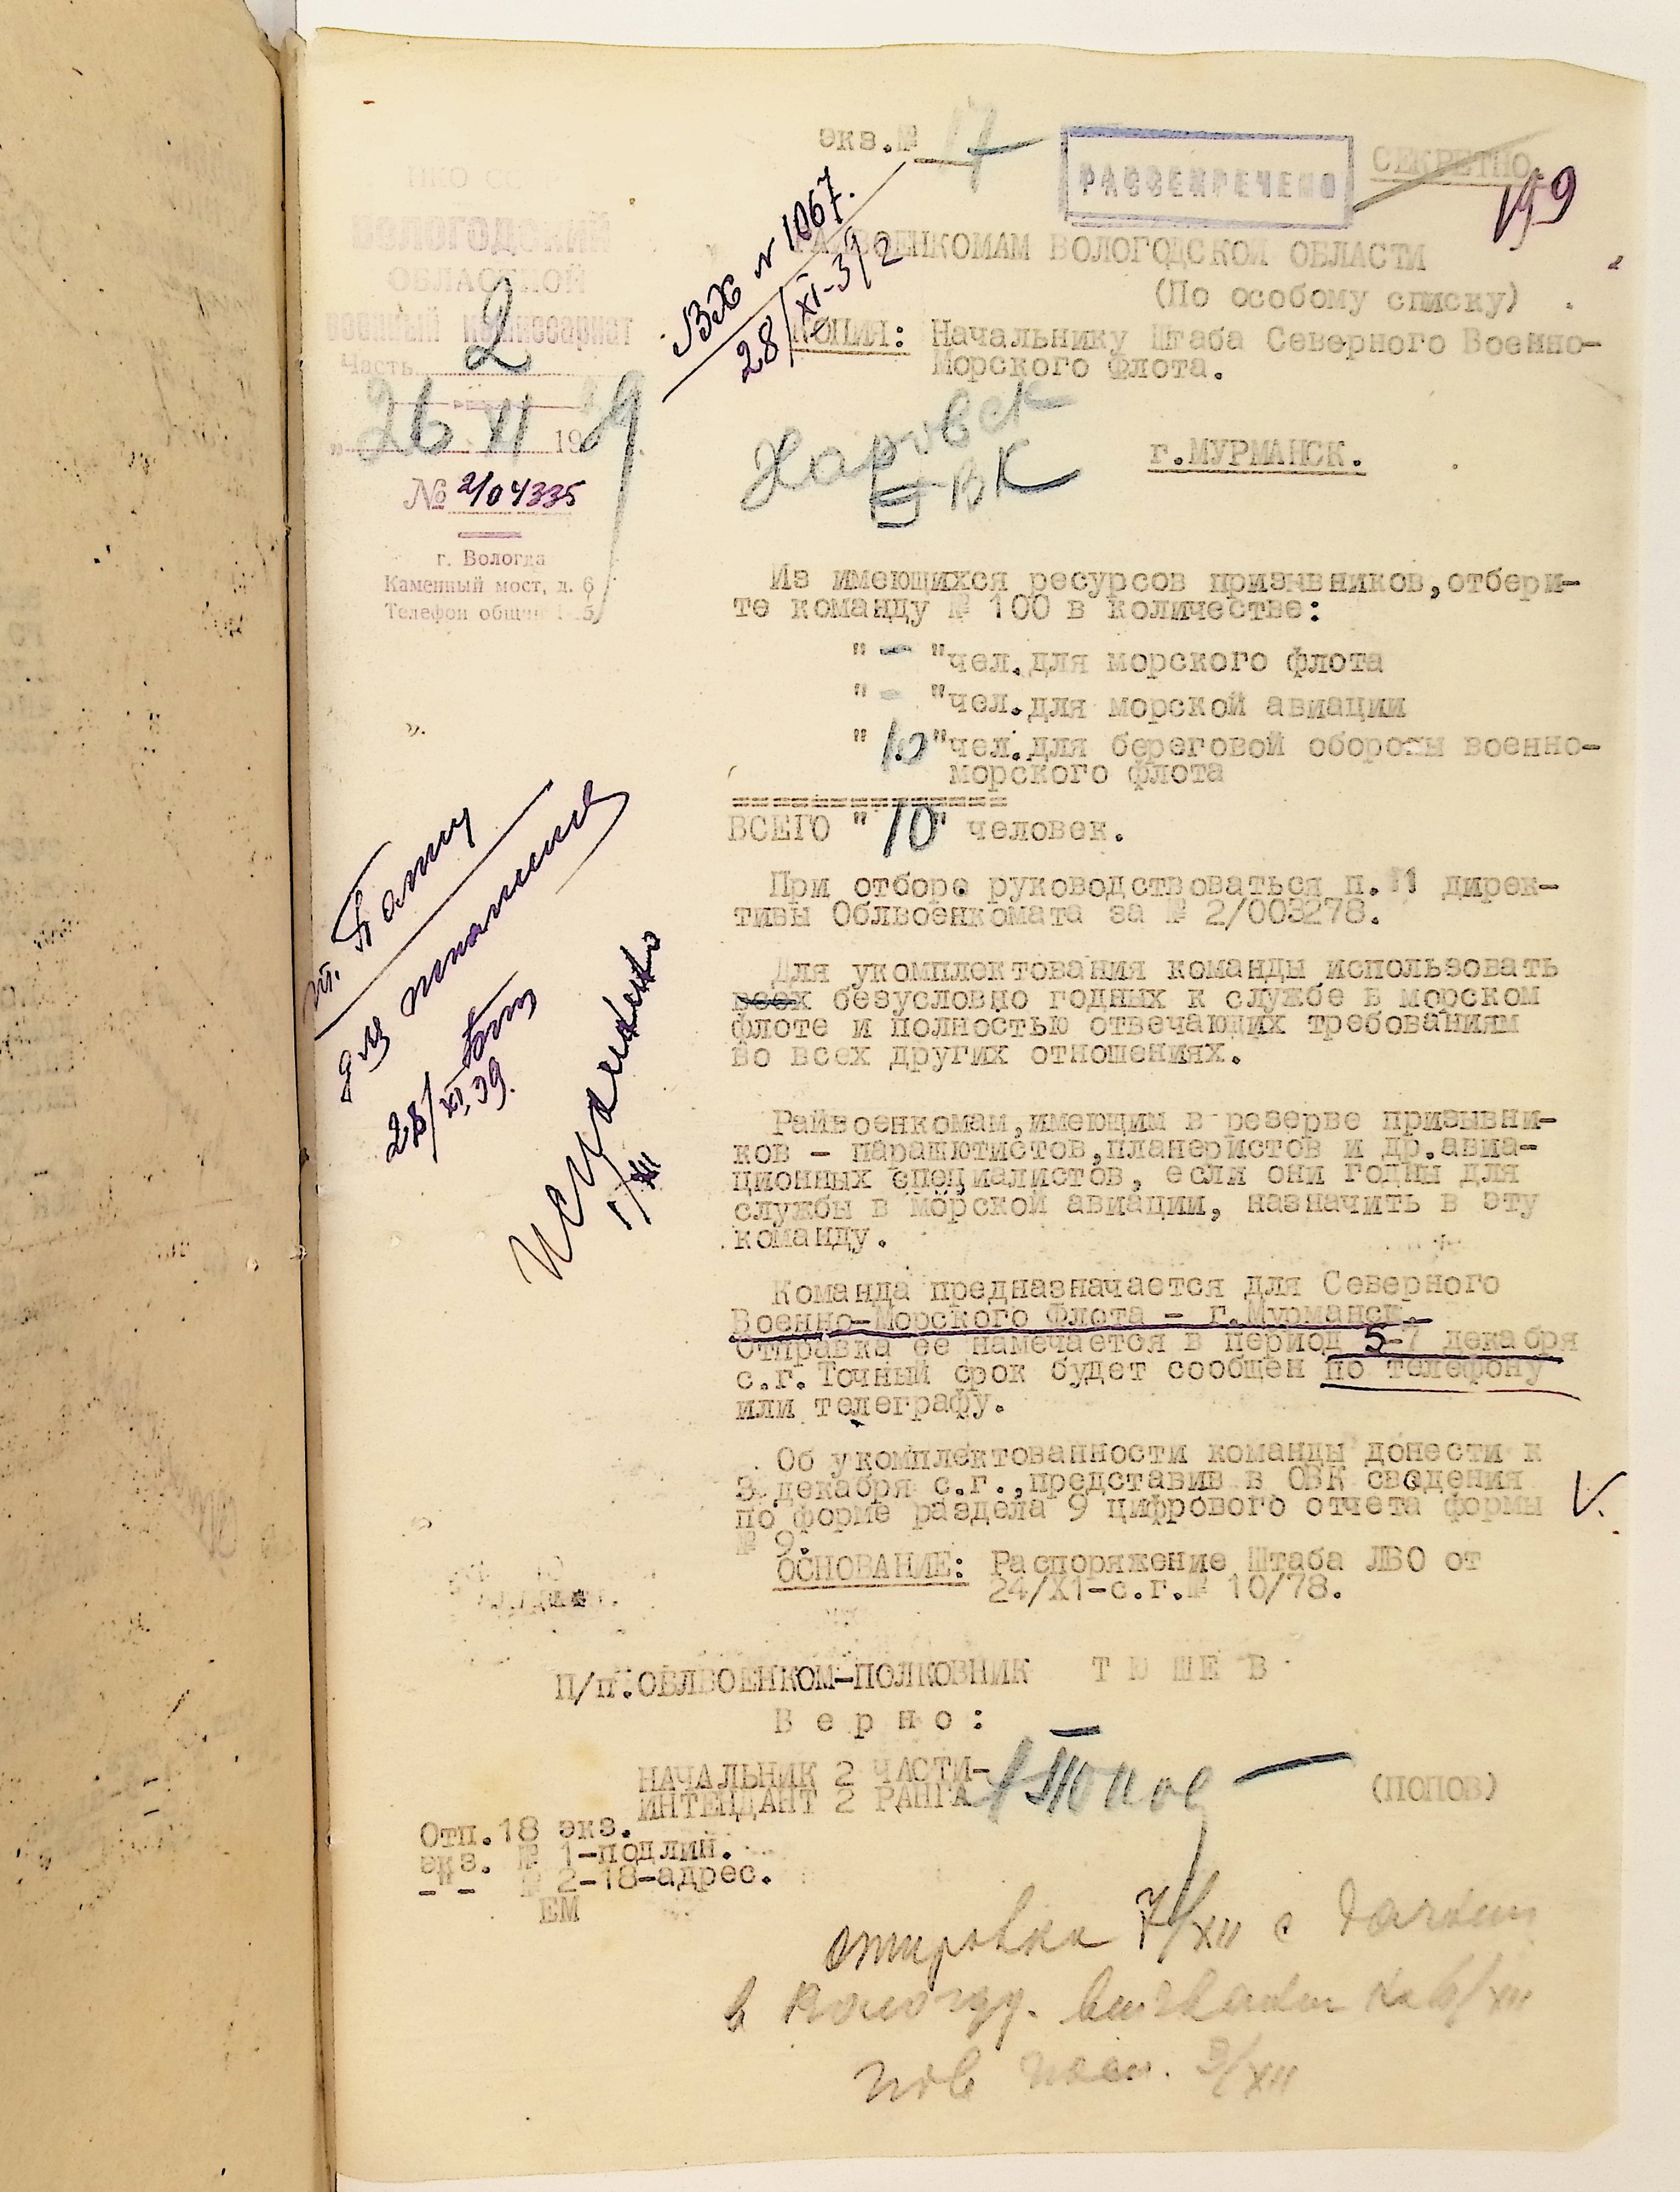 экз.№ 17
РАССЕКРЕЧЕНО
СЕКРЕТНО
199
НКО СССР
ВОЛОГОДСКИЙ
ОБЛАСТНОЙ
военный комиссариат
Часть 2
"26" XI 1939
№ 2/04335
г. Вологда
Каменный мост, д. 6
Телефон общий
Вх № 1067.
28/XI-39
РАЙВОЕНКОМАМ ВОЛОГОДСКОЙ ОБЛАСТИ
(По особому списку)
КОПИЯ: Начальнику Штаба Северного Военно-
Морского Флота.
г.МУРМАНСК.
Харовск
РВК
Из имеющихся ресурсов призывников,отбери-
те команду № 100 в количестве:
" - "чел.для морского флота
" - "чел.для морской авиации
" 10 "чел.для береговой обороны военно-
морского флота
==================
ВСЕГО "10" человек.
При отборе руководствоваться п.11 дирек-
тивы Облвоенкомата за № 2/003278.
Для укомплектования команды использовать
всех безусловно годных к службе в морском
флоте и полностью отвечающих требованиям
во всех других отношениях.
Райвоенкомам,имеющим в резерве призывни-
ков - парашютистов,планеристов и др.авиа-
ционных специалистов, если они годны для
службы в морской авиации, назначить в эту
команду.
Команда предназначается для Северного
Военно-Морского Флота - г.Мурманск.
Отправка ее намечается в период 5-7 декабря
с.г. Точный срок будет сообщен по телефону
или телеграфу.
Об укомплектованности команды донести к
3 декабря с.г.,представив в ОВК сведения
по форме раздела 9 цифрового отчета формы
№ 9.
ОСНОВАНИЕ: Распоряжение Штаба ЛВО от
24/X1-с.г.№ 10/78.
28/XI.39.
Исполнено
1/XII
П/п.ОБЛВОЕНКОМ-ПОЛКОВНИК Т Ю Ш Е В
В е р н о :
НАЧАЛЬНИК 2 ЧАСТИ-
ИНТЕНДАНТ 2 РАНГА Попов (ПОПОВ)
Отп.18 экз.
экз. № 1-подлин.
-"- № 2-18-адрес.
ЕМ
отправка 7/XII с
в Вологду. на 6/XII
3/XII